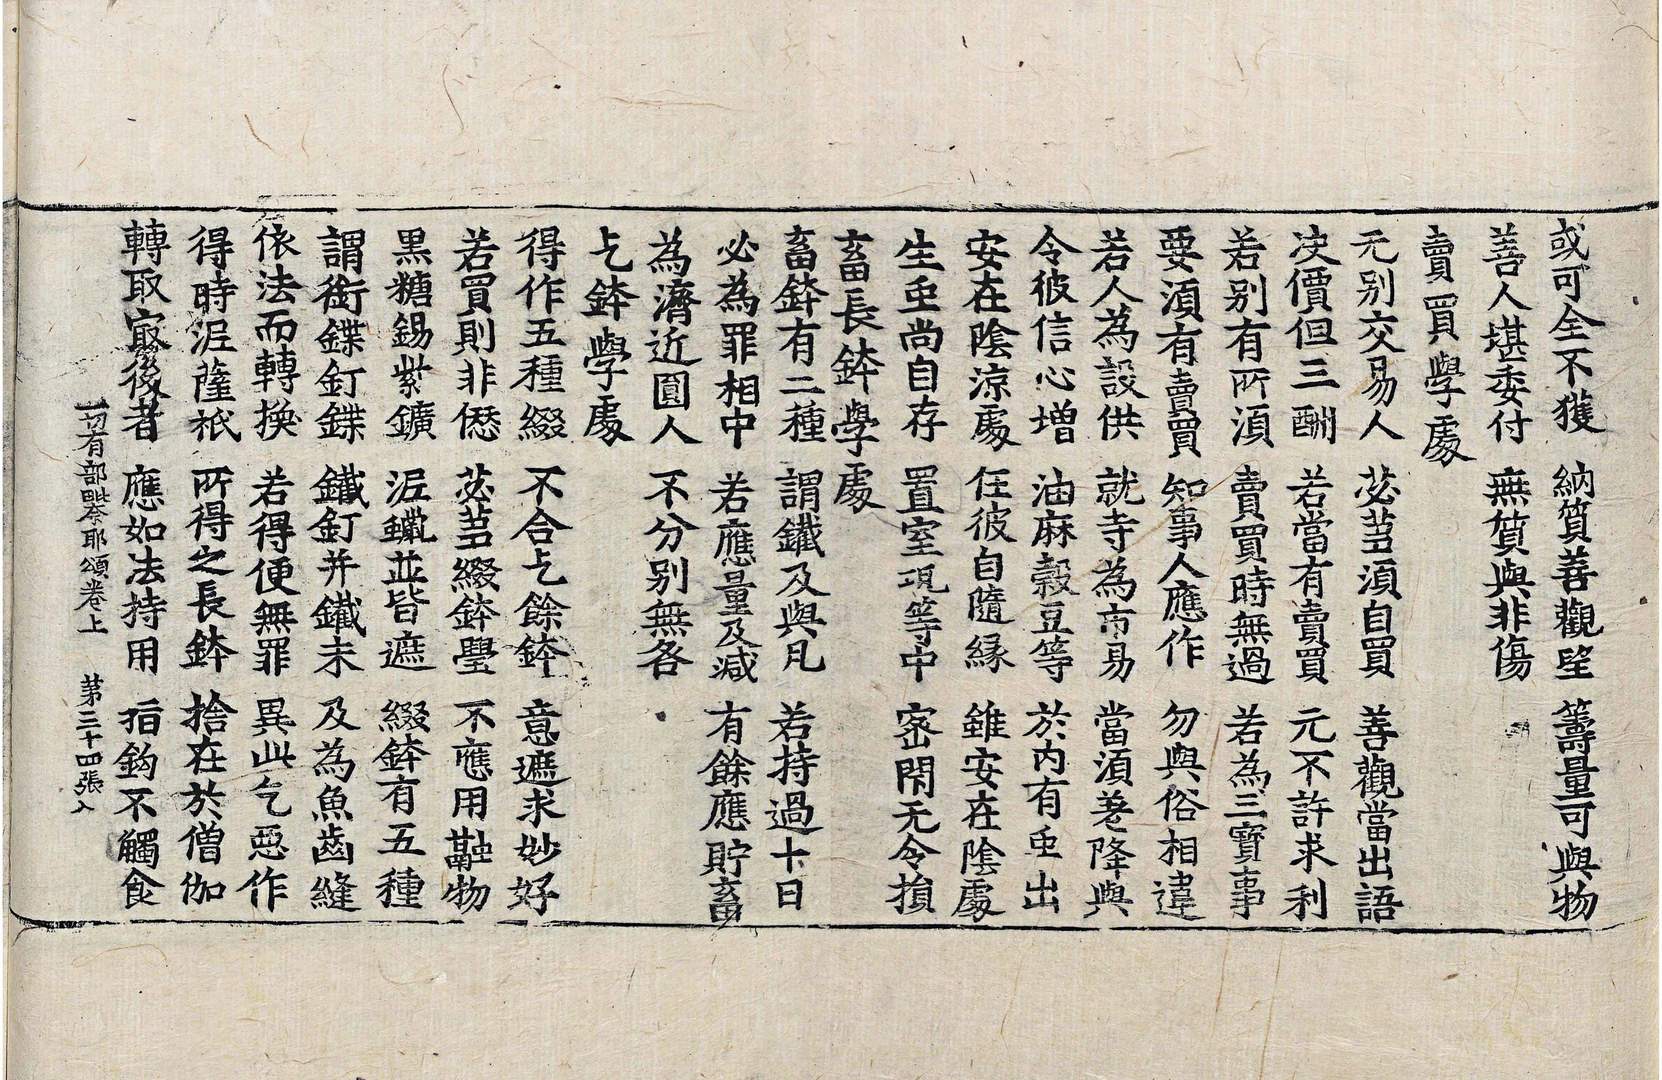 或可全不獲 納質善觀望 籌量可與物
善人堪委付 無質與非傷
賣買學處
无别交易人 苾芻須自買 善觀當出語
决價但三酬 若當有賣買 元不許求利
若别有所須 賣買時無過 若為三寶事
要湏有賣買 知事人應作 勿與俗相違
若人為設供 就寺為市易 當湏善降與
令彼信心增 油麻穀豆等 於内有虫出
安在陰涼處 任彼自隨緣 雖安在陰處
生虫尚自存 置室坑等中 密閇无令損
畜長鉢學處
畜鉢有二種 謂鐵及與凡 若持過十日
必為罪相中 若應量及減 有餘應貯畜
為濟近圓人 不分别無咎
乞鉢學處
得作五種綴 不合乞餘鉢 意遮求妙好
若買則非㥟 苾芻綴鉢璺 不應用融物
黑糖錫紫鑛 泥蠟並皆遮 綴鉢有五種
謂銜鍱釘鍱 鐵釘并鐵末 及為魚齒縫
依法而轉換 若得便無罪 異此乞惡作
得時泥薩祇 所得之長鉢 捨在於僧伽
轉取㝡後者 應如法持用 指鈎不觸食
一切有部毗奈耶頌卷上 第三十四張入